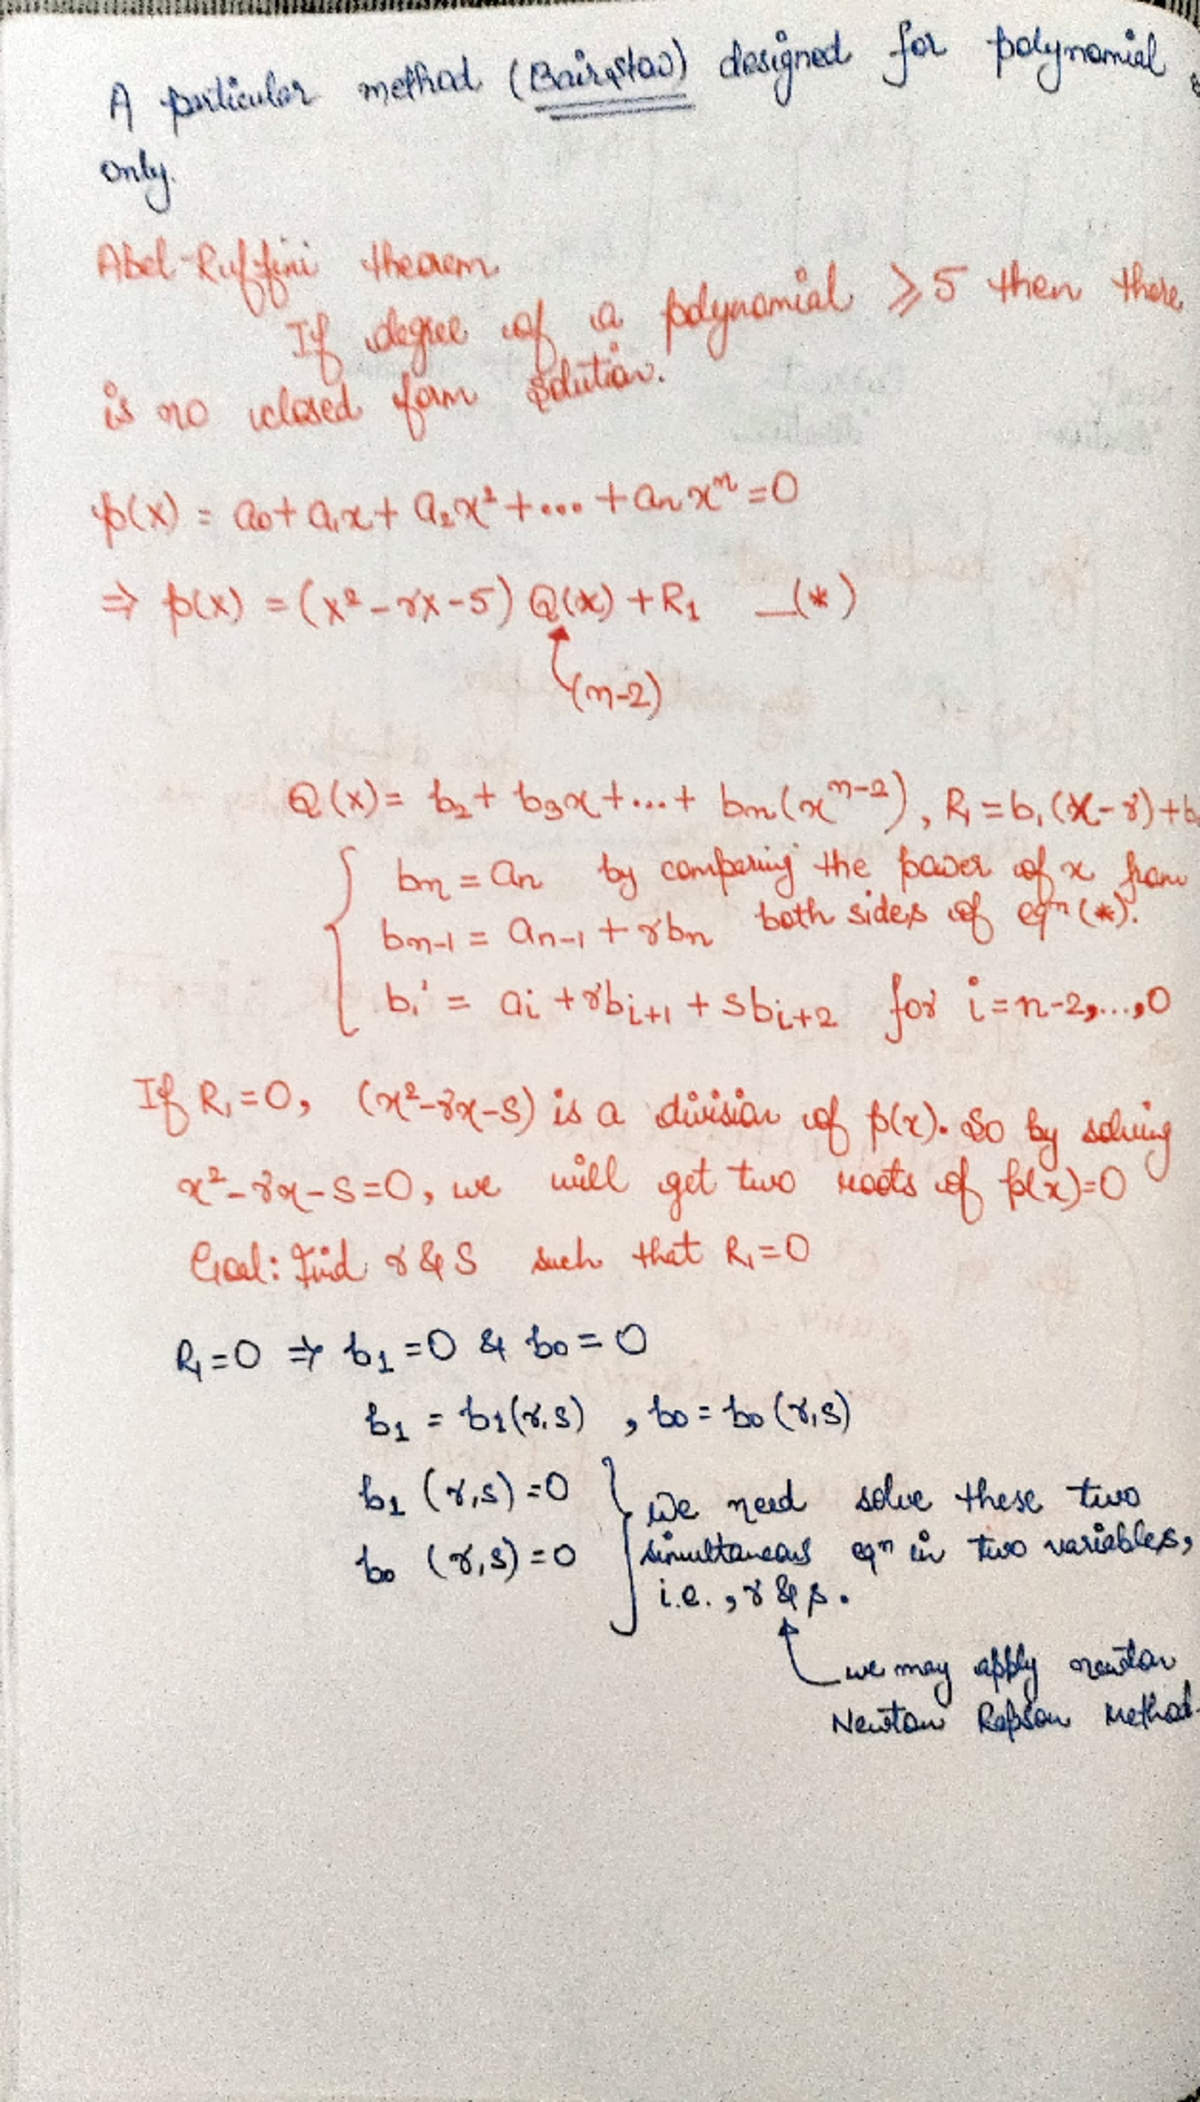 A particular method (Bairstow) designed for polynomial
only.
Abel-Ruffini theorem
If degree of a polynomial ≥ 5 then there
is no closed form solution.
p(x) = a₀ + a₁x + a₂x² + ... + aₙxⁿ = 0
⇒ p(x) = (x² - rx - s) Q(x) + R₁ —(*)
(n-2)
Q(x) = b₂ + b₃x + ... + bₙ(xⁿ⁻²), R₁ = b₁(x - r) + b
bₙ = aₙ by comparing the power of x from
bₙ₋₁ = aₙ₋₁ + rbₙ both sides of eqⁿ (*).
bᵢ = aᵢ + rbᵢ₊₁ + sbᵢ₊₂ for i = n-2, ..., 0
If R₁ = 0, (x² - rx - s) is a division of p(x). So by solving
x² - rx - s = 0, we will get two roots of p(x) = 0
Goal: Find r & s such that R₁ = 0
R₁ = 0 ⇒ b₁ = 0 & b₀ = 0
b₁ = b₁(r,s) , b₀ = b₀(r,s)
b₁ (r,s) = 0 } we need solve these two
b₀ (r,s) = 0 simultaneous eqⁿ in two variables,
i.e., r & s.
we may apply newton
Newton Rapson Method.